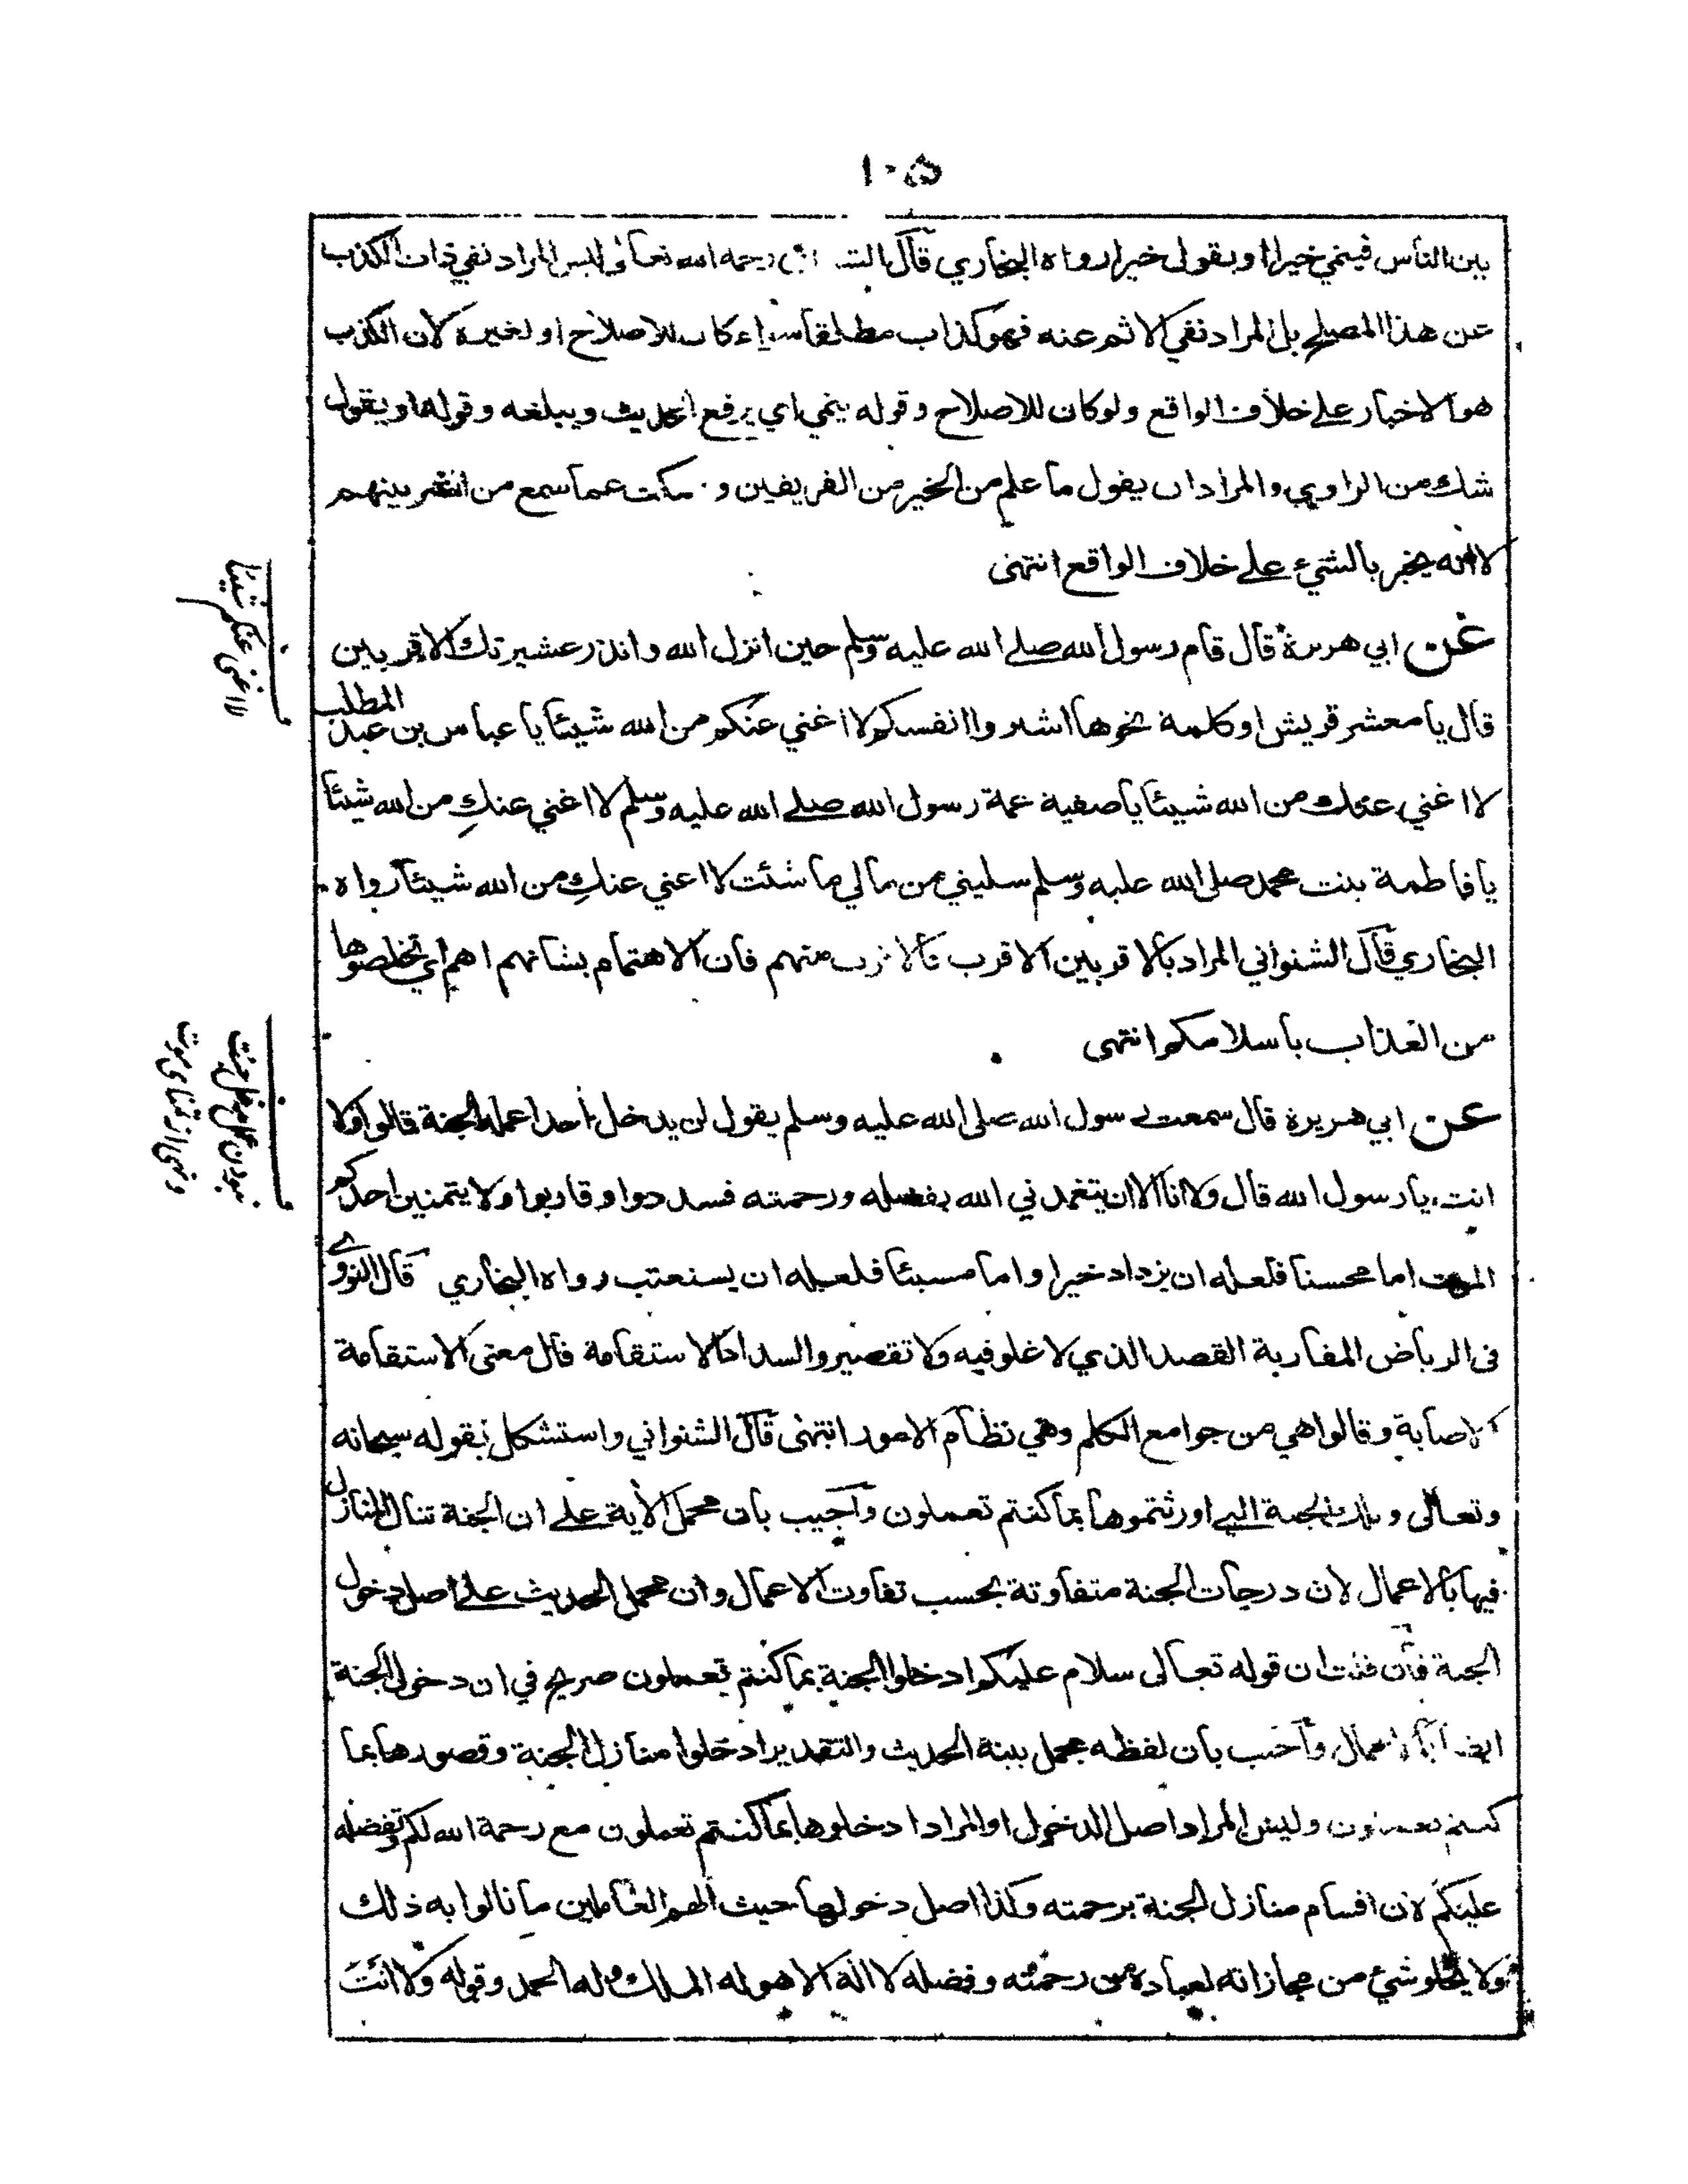 ١٠٥
بين الناس فينمي خيرا او يقول خيرا رواه البخاري قال رحمه الله تعالى ليس المراد نفي ذات الكذب
عن هذا المصلح بل المراد نفي الاثم عنه فهو كذاب مطلقا سواء كان للاصلاح او لغيره لان الكذب
هو الاخبار على خلاف الواقع ولو كان للاصلاح وقوله ينمي اي يرفع الحديث ويبلغه وقوله او يقول
شك من الراوي والمراد ان يقول ما علم من الخير من الفريقين و سكت عما سمع من الشر بينهم
لا انه يخبر بالشيء على خلاف الواقع انتهى
عن ابي هريرة قال قام رسول الله صلى الله عليه وسلم حين انزل الله وانذر عشيرتك الاقربين
قال يا معشر قريش او كلمة نحوها اشتروا انفسكم لا اغني عنكم من الله شيئا يا عباس بن عبد المطلب
لا اغني عنك من الله شيئا يا صفية عمة رسول الله صلى الله عليه وسلم لا اغني عنكِ من الله شيئا
يا فاطمة بنت محمد صلى الله عليه وسلم سليني من مالي ما شئت لا اغني عنكِ من الله شيئا رواه
البخاري قال الشنواني المراد بالاقربين الاقرب فالاقرب منهم فان الاهتمام بشانهم اهم اي تخلصوها
من العذاب باسلامكم انتهى
لا اغنى عنكم شيئا
عن ابي هريرة قال سمعت رسول الله صلى الله عليه وسلم يقول لن يدخل احدا عمله الجنة قالوا ولا
انت يا رسول الله قال ولا انا الا ان يتغمدني الله بفضله ورحمته فسددوا وقاربوا ولا يتمنين احدكم
الموت اما محسنا فلعله ان يزداد خيرا واما مسيئا فلعله ان يستعتب رواه البخاري قال النووي
فى الرياض المقاربة القصد الذي لا غلو فيه ولا تقصير والسداد الاستقامة قال معنى الاستقامة
الاصابة وقالوا هي من جوامع الكلم وهي نظام الامور انتهى قال الشنواني واستشكل بقوله سبحانه
وتعالى وتلك الجنة التي اورثتموها بما كنتم تعملون واجيب بان محمل الأية على ان الجنة تنال المنازل
فيها بالاعمال لان درجات الجنة متفاوتة بحسب تفاوت الاعمال وان محمل الحديث على اصل دخول
الجنة فان قلت ان قوله تعالى سلام عليكم ادخلوا الجنة بما كنتم تعملون صريح في ان دخول الجنة
ايضا بالاعمال واجيب بان لفظه مجمل بينه الحديث والتقدير ادخلوا منازل الجنة وقصورها بما
كنتم تعملون وليس المراد اصل الدخول او المراد ادخلوها بما كنتم تعملون مع رحمة الله لكم وتفضله
عليكم لان اقسام منازل الجنة برحمته وكذا اصل دخولها حيث الهم العاملين ما نالوا به ذلك
ولا يخلو شئ من مجازاته لعباده من رحمته وفضله لا اله الا هو له الملك وله الحمد وقوله ولا انت